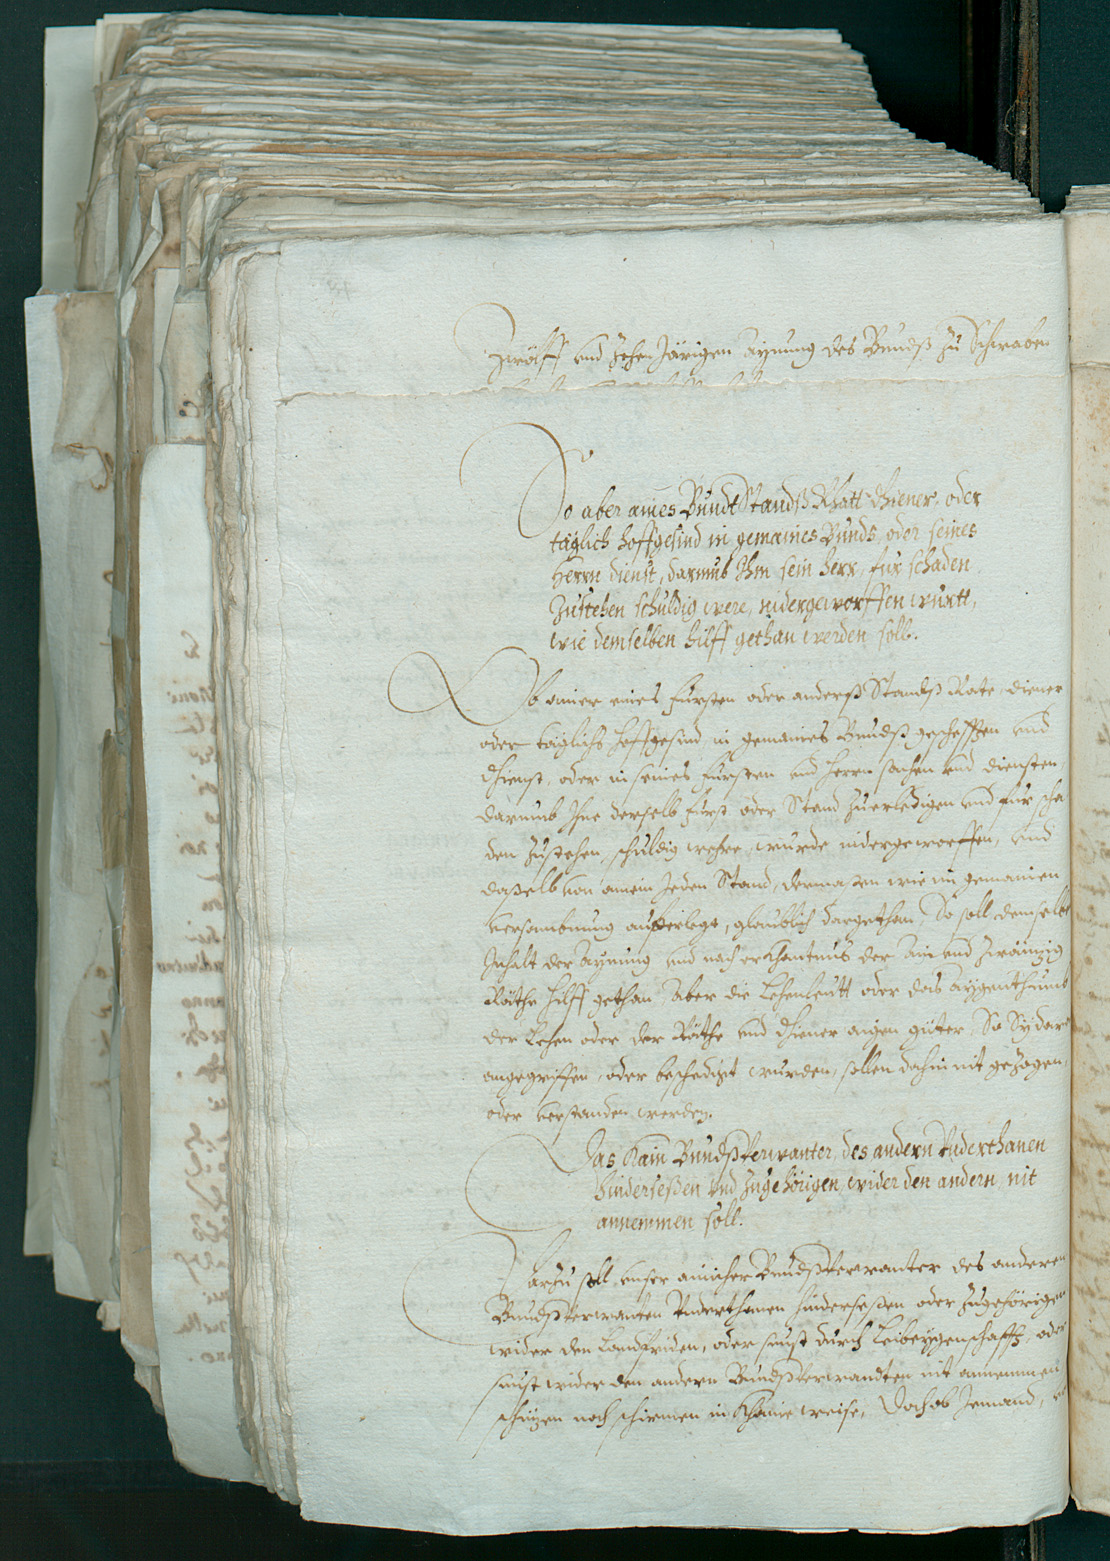 Zwölff und Zehen Järigen Aynung des Bundß zu Schwaben
So aber aines BundtStandß Rhatt dhiener oder
täglich hoffgesind in gemaines Bunds oder seines
Herrn dienst, darumb Ihm sein herr, für schaden
Zustehen schuldig were, nidergeworffen wurtt,
wie demselben hilff gethan werden soll.
Ob ainer eines Fürsten oder anderß Standtß Rate, diener
oder täglichs hoffgesind, in gemaines Bundß gescheften und
dhienst, oder in seines Fürsten und Herrn sachen und diensten,
darumb Ihne derselb Fürst oder Stand zuerledigen und für scha
den zustehen schuldig wehre, wurde nidergeworffen, und
daßelb von ainem Jeden Stand, dermaßen wie in gemainen
versamblung aufferlegt, glaublich dargethan, So soll demselben
Inhalt der Aynung und nach erkhantnus der Ain und zwäinzig
Räthe hilff gethan. Aber die Lehenleutt oder das Aygenthumb
der Lehen oder der Räthe und dhiener aigen güter, So Sy dar
angegriffen, oder beschediget wurden, sollen dahin nit gezogen,
oder verstanden werden.
Das Kain Bundßverwanter des andern Underthanen
hinderseßen und Zugehörigen, wider den andern, nit
annemmen soll.
Darzu soll unser ainicher Bundßverwanter des anderen
Bundßverwanten Underthanen hinderseßen oder zugehörigen
wider den Landfriden, oder sunst durch Leibeygenschafft, oder
sunst wider den andern Bundßverwandten nit annemmen
schützen noch schirmen in Khaine weise, Doch ob Jemand,